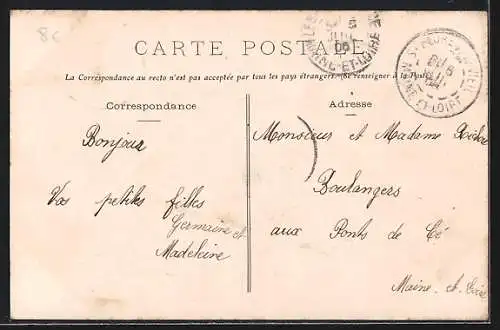 8€
CARTE POSTALE
La Correspondance au recto n'est pas acceptée par tous les pays étrangers. (Se renseigner à la Poste)
Correspondance
Adresse
Bonjour
Vos petites filles
Germaine et
Madeleine
Monsieur et Madame
Boulangers
aux Ponts de Cé
Maine-et-Loire